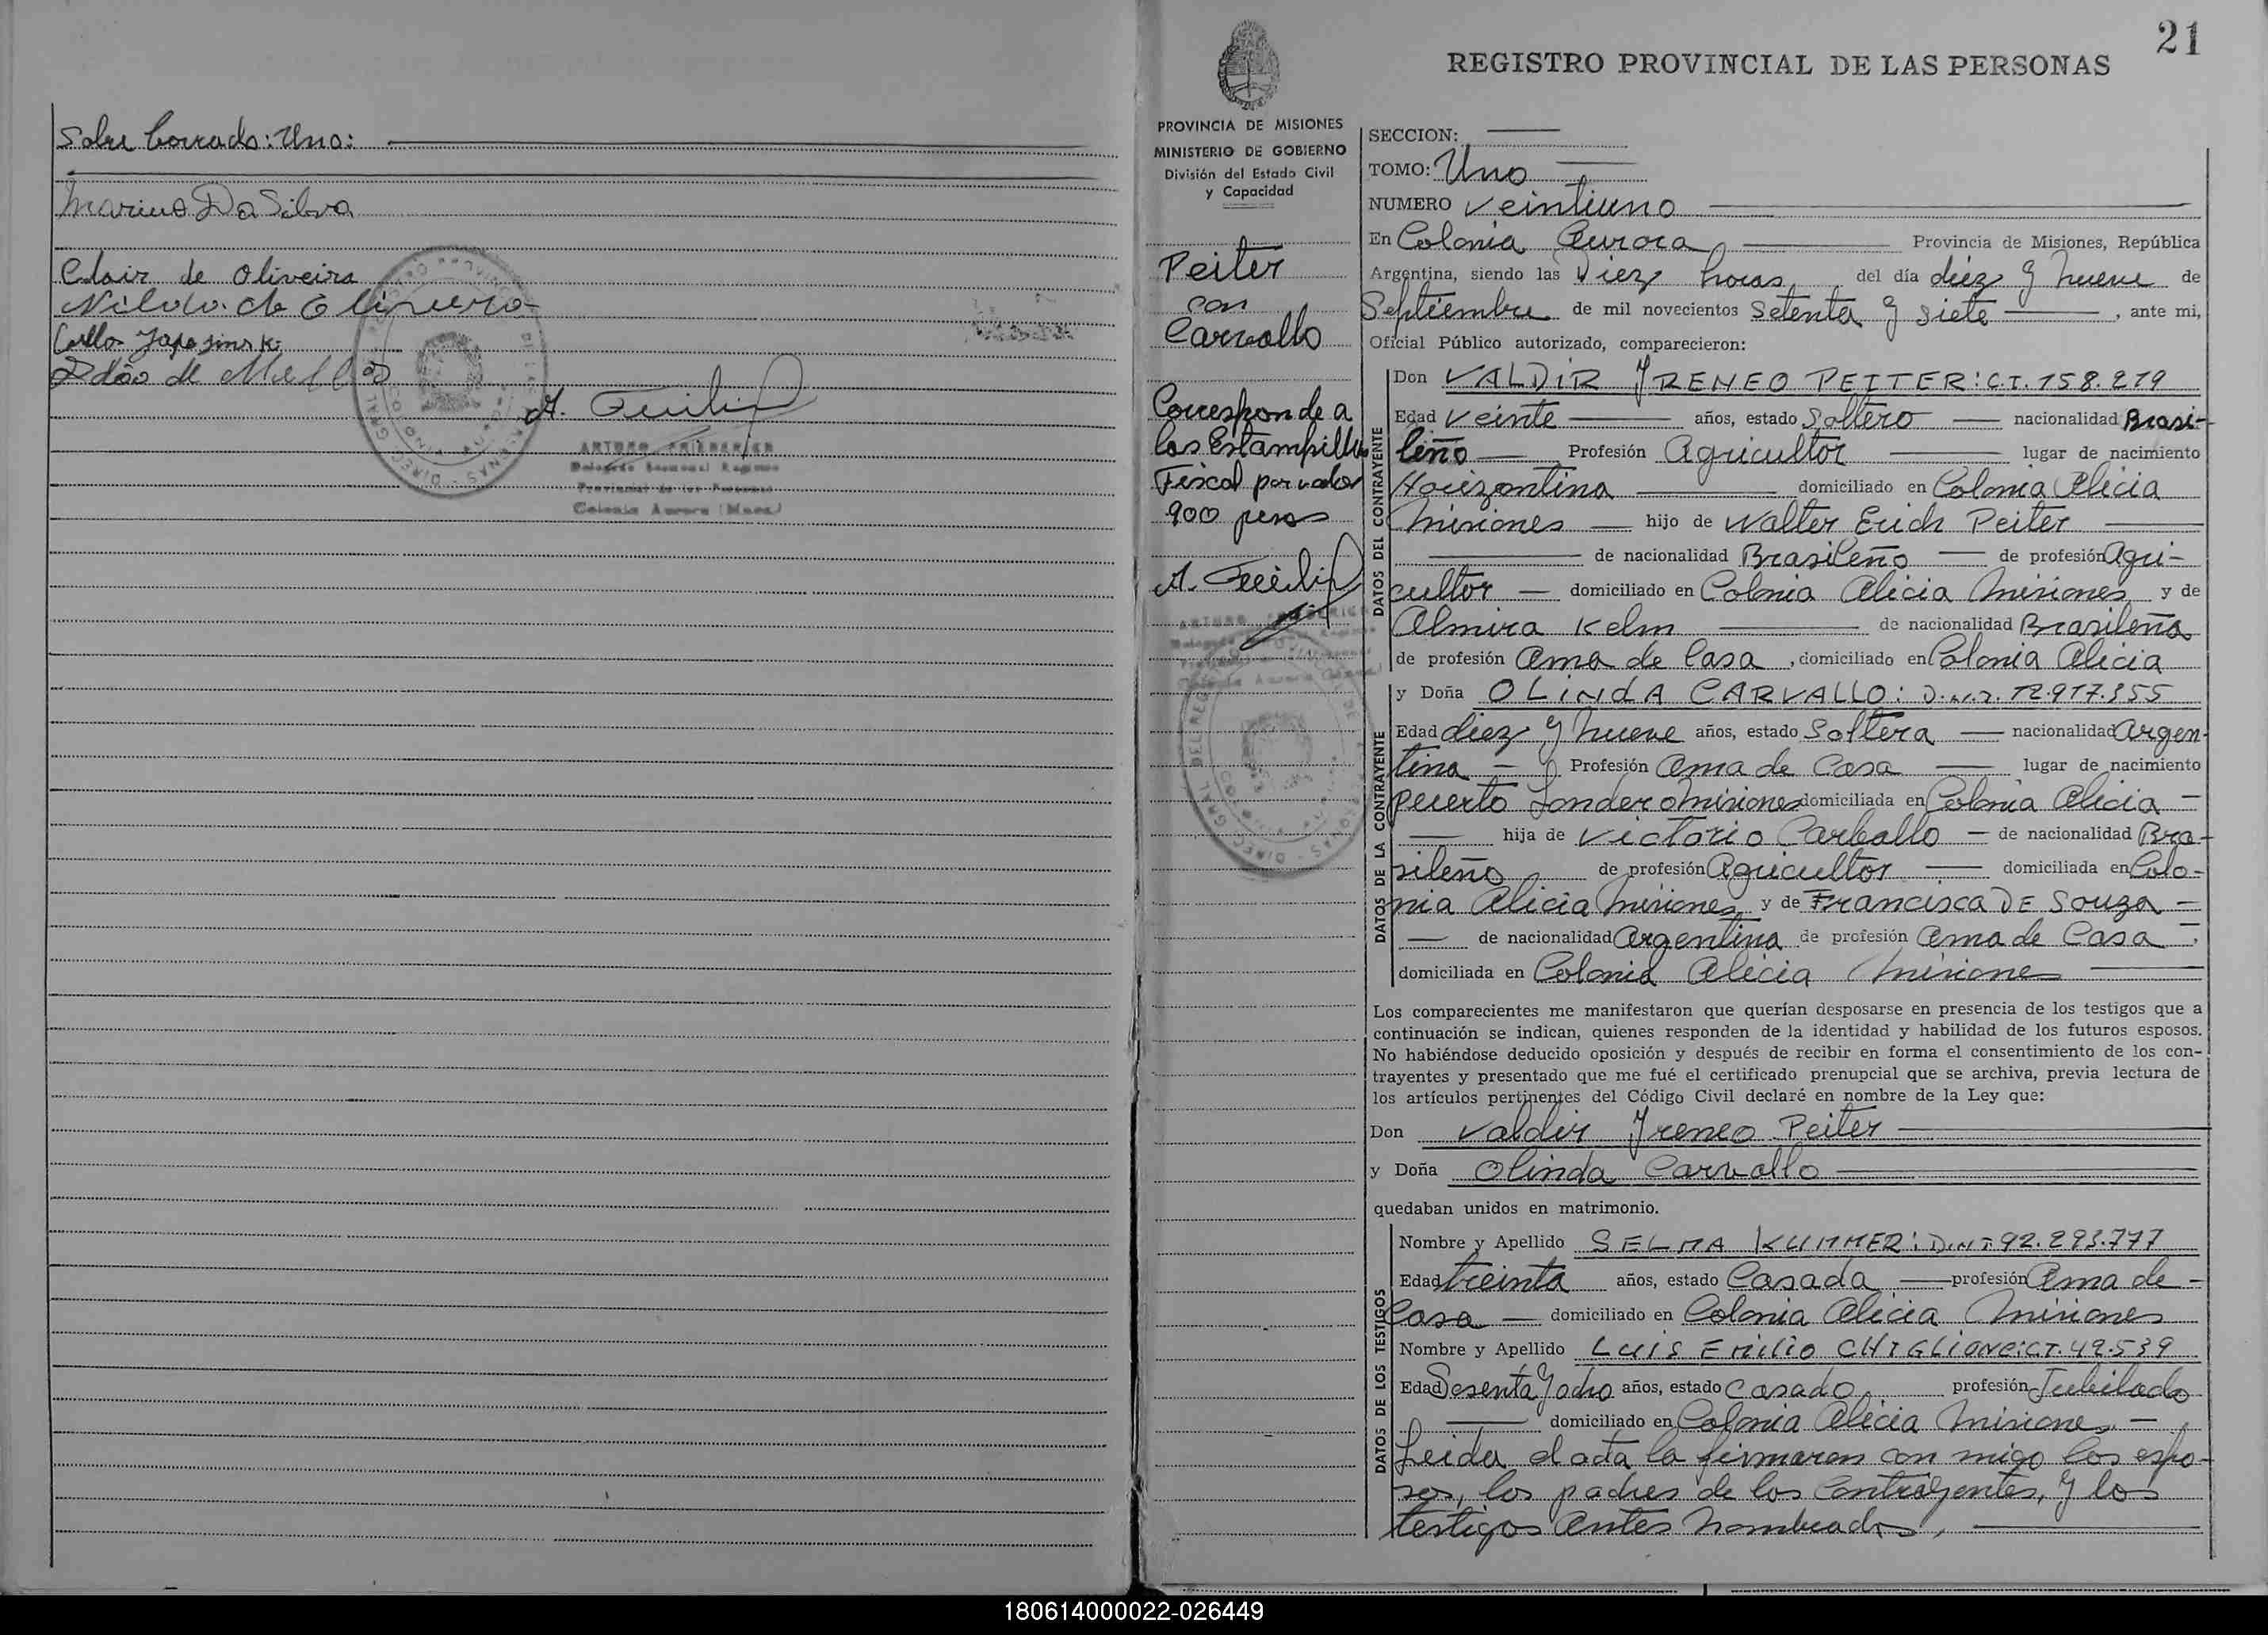 Sobre borrado: Uno:
Marino Da Silva
Clair de Oliveira
Carlos
Adão de Mello
ARTURO
Colonia Aurora (Mnes.)
21
REGISTRO PROVINCIAL DE LAS PERSONAS
PROVINCIA DE MISIONES
MINISTERIO DE GOBIERNO
División del Estado Civil
y Capacidad
Peiter
con
Carvallo
Corresponde a
las Estampillas
Fiscal por valor
900 pesos
SECCION:
TOMO: Uno
NUMERO Veintiuno
En Colonia Aurora Provincia de Misiones, República
Argentina, siendo las Diez horas del día diez y nueve de
Septiembre de mil novecientos Setenta y siete, ante mi,
Oficial Público autorizado, comparecieron:
DATOS DEL CONTRAYENTE
Don VALDIR YRENEO PEITER: C.I. 158.219
Edad Veinte años, estado Soltero nacionalidad Brasi-
leño Profesión Agricultor lugar de nacimiento
Horizontina domiciliado en Colonia Alicia
Misiones hijo de Walter Erich Peiter
de nacionalidad Brasileño de profesión Agri-
cultor domiciliado en Colonia Alicia Misiones y de
Almira Kelm de nacionalidad Brasileña
de profesión Ama de Casa, domiciliado en Colonia Alicia
DATOS DE LA CONTRAYENTE
y Doña OLINdA CARVALLO: D.N.I. 12.917.355
Edad diez y nueve años, estado Soltera nacionalidad Argen-
tina Profesión Ama de Casa lugar de nacimiento
puerto Londero Misiones domiciliada en Colonia Alicia
hija de Victorio Carballo de nacionalidad Bra-
sileño de profesión Agricultor domiciliada en Colo-
nia Alicia Misiones y de Francisca DE Souza
de nacionalidad Argentina de profesión Ama de Casa
domiciliada en Colonia Alicia Misiones
Los comparecientes me manifestaron que querían desposarse en presencia de los testigos que a
continuación se indican, quienes responden de la identidad y habilidad de los futuros esposos.
No habiéndose deducido oposición y después de recibir en forma el consentimiento de los con-
trayentes y presentado que me fué el certificado prenupcial que se archiva, previa lectura de
los artículos pertinentes del Código Civil declaré en nombre de la Ley que:
Don Valdir Yreneo Peiter
y Doña Olinda Carvallo
quedaban unidos en matrimonio.
DATOS DE LOS TESTIGOS
Nombre y Apellido SELMA KUMMER: D.N.I 92.293.777
Edad treinta años, estado Casada profesión Ama de
Casa domiciliado en Colonia Alicia Misiones
Nombre y Apellido LUIS EMiLiO CHIGLIONE: C.I. 42.539
Edad Sesenta y ocho años, estado Casado profesión Jubilado
domiciliado en Colonia Alicia Misiones
Leida el acta la firmaron con migo los espo-
sos, los padres de los Contrayentes, y los
testigos antes nombrados,
180614000022-026449